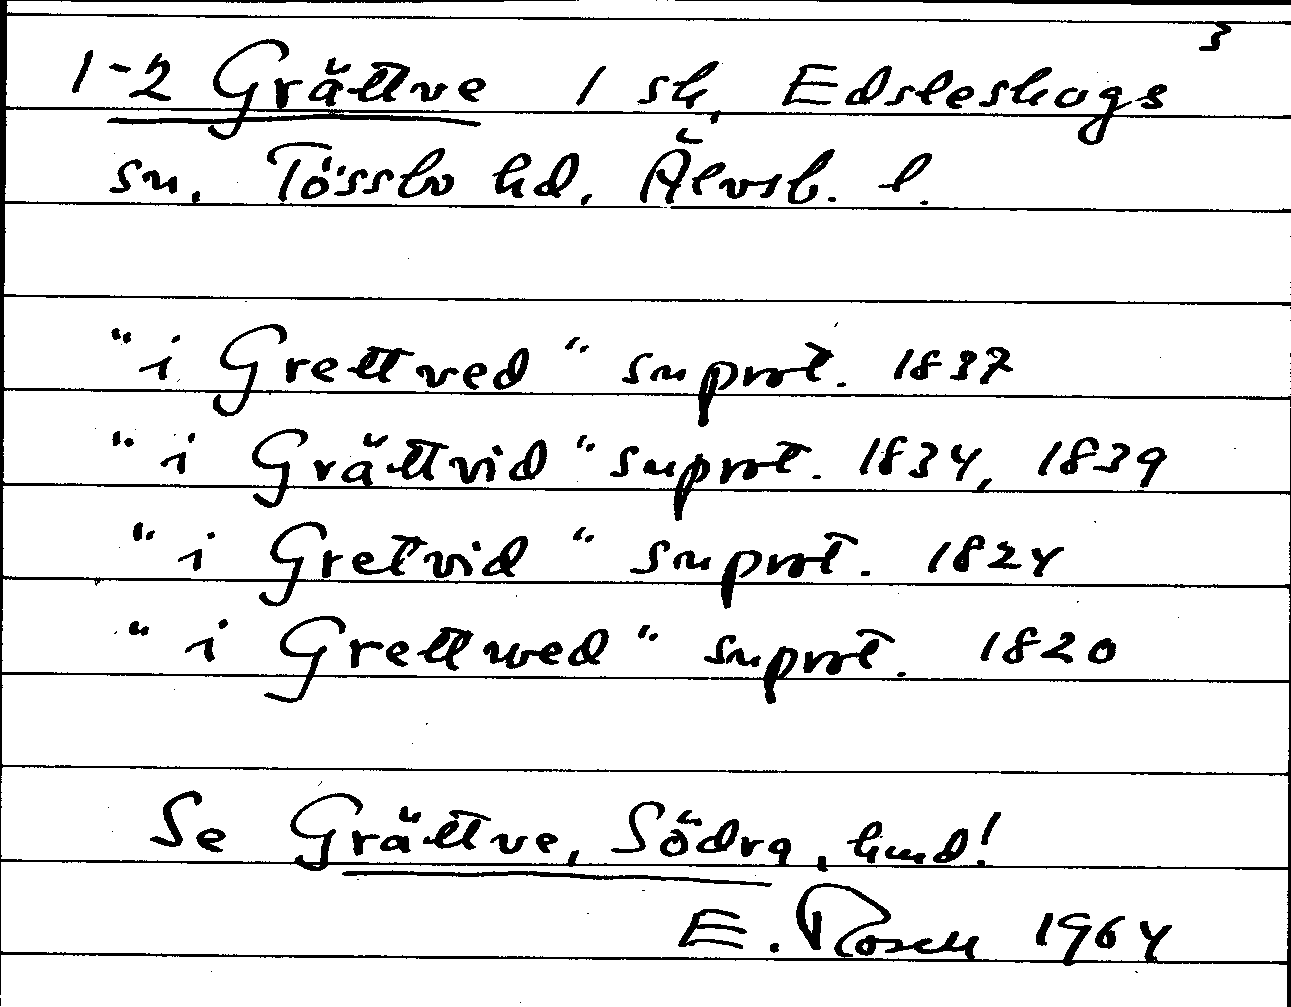 3
1-2 Grättve 1 sk, Edsleskogs
sn. Tössbo hd, Älvsb. l.
"i Grettved" snprot. 1837
"i Grättvid" snprot. 1834, 1839
"i Gretvid" snprot. 1824
"i Grettwed" snprot. 1820
Se Grättve, Södra, hmd!
E. Rosen 1964